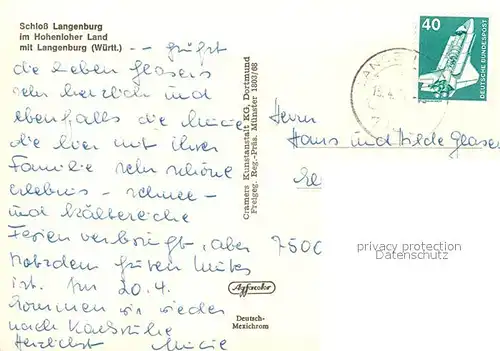 Schloß Langenburg
im Hohenloher Land
mit Langenburg (Württ.) -- grüßt
die lieben Glasers
sehr herzlich und
ebenfalls die
die hier mit ihrer
Familie sehr schöne
erlebnis - schnee -
und kältereiche
Ferien verbringt, aber
trotzdem guten Mutes
ist. Am 20.4.
kommen wir wieder
nach Karlsruhe
Herzlichst
Cramers Kunstanstalt KG, Dortmund
Freigeg. Reg.-Präs. Münster 1803/68
Agfacolor
Deutsch-
Mexichrom
40
DEUTSCHE BUNDESPOST
Herrn
Hans und Hilde Glaser
7500
privacy protection
Datenschutz